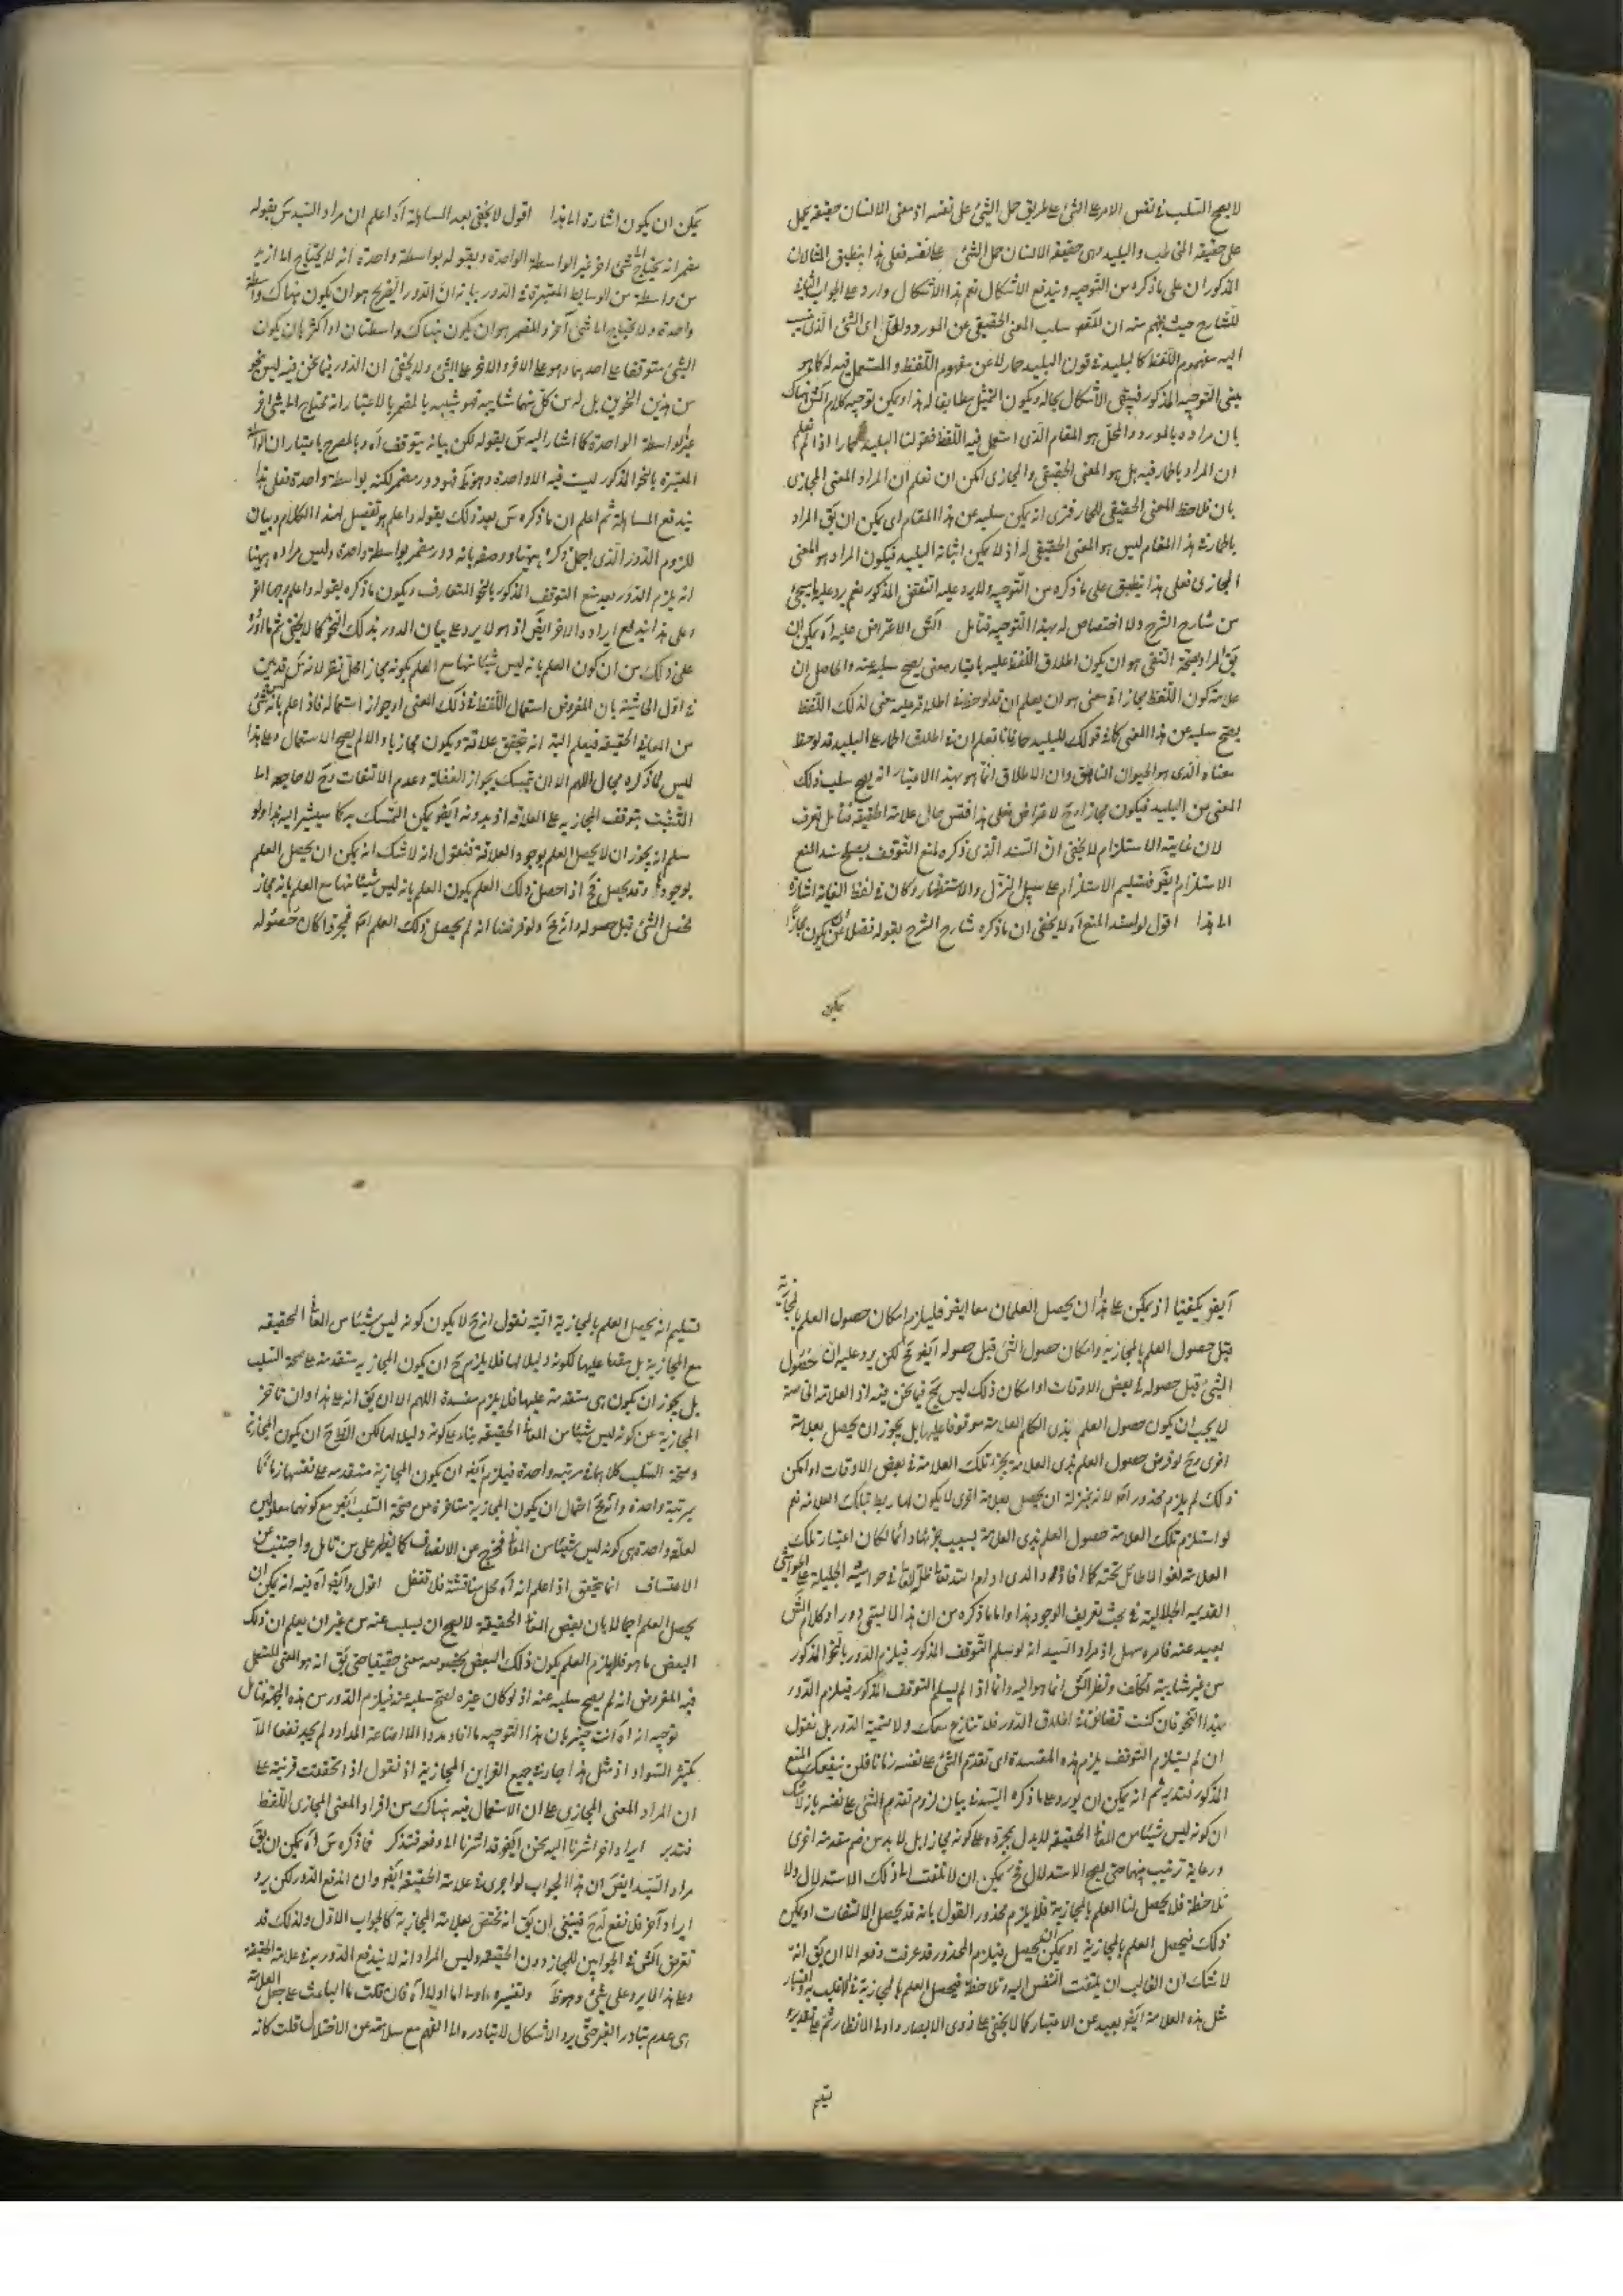 لا يصح السلب في نفس الامر على الشئ على طريق حمل الشئ على نفسه اذ معنى الانسان حقيقة يحمل
على حقيقة المخاطب والبليد وهى حقيقة الانسان حمل الشئ على نفسه فعلى هذا ينطبق المثالان
المذكوران على ما ذكره من التوجيه ويندفع الاشكال نعم هذا الاشكال وارد على الجواب
للشارح حيث يفهم منه ان المقص سلب المعنى الحقيقى عن المورد والمحل اى الشئ الذى
اليه مفهوم اللفظ كالبليد في قولك البليد حمار لا عن مفهوم اللفظ والمستعمل فيه له كما هو
مبنى التوجيه المذكور فيبقى الاشكال بحاله ويكون التمثيل مطابقا له هذا ويمكن توجيه كلام الش هناك
بان مراده بالمورد والمحل هو المقام الذى استعمل فيه اللفظ فقولنا البليد حمار اذا لم نعلم
ان المراد بالحمار فيه هل هو المعنى الحقيقى والمجازى امكن ان نعلم ان المراد المعنى المجازى
بان نلاحظ المعنى الحقيقى للحمار فنرى انه يمكن سلبه عن هذا المقام اى يمكن ان يق المراد
بالحمار في هذا المقام ليس هو المعنى الحقيقى له اذ لا يمكن اثباته البليد فيكون المراد هو المعنى
المجازى فعلى هذا ينطبق على ما ذكره من التوجيه ولا يرد عليه النقض المذكور نعم يرد عليه ما سيجئ
من شارح الشرح ولا اختصاص له بهذا التوجيه فتامل الش الاعتراض عليه اه يمكن ان
يق المراد بصحة النفى هو ان يكون اطلاق اللفظ عليه باعتبار معنى يصح سلبه عنه والحاصل ان
علامة كون اللفظ مجازا في معنى هو ان يعلم ان قد لوحظ في اطلاقه عليه معنى لذلك اللفظ
يصح سلبه عن هذا المعنى كما في قولك للبليد حمار فانا نعلم ان في اطلاق الحمار على البليد قد لوحظ
معناه الذى هو الحيوان الناهق وان الاطلاق انما هو بهذا الاعتبار انه يصح سلب ذلك
المعنى من البليد فيكون مجازا وح لا اعتراض فعلى هذا فقس حال علامة الحقيقة فتامل تعرف
لان غايته الاستلزام لا يخفى ان السند الذى ذكره لمنع التوقف يصلح سند المنع
الاستلزام ايض فتسليم الاستلزام على سبيل التنزل والاستظهار وكان في لفظ الغاية اشارة
الى هذا اقول لو اسند المنع اه لا يخفى ان ما ذكره شارح الشرح بقوله فضلا عن ان يكون مجازا
يمكن
يمكن ان يكون اشارة الى هذا اقول لا يخفى بعد المساهلة اه اعلم ان مراد السيد س بقوله
مضمر انه يحتاج الى شئ اخر غير الواسطة الواحدة وبقوله بواسطة واحدة انه لا يحتاج الى ازيد
من واسطة من الوسايط المعتبرة في الدور بيانه ان الدور الصريح هو ان يكون هناك واسطة
واحدة ولا يحتاج الى شئ آخر والمضمر هو ان يكون هناك واسطتان او اكثر بان يكون
الشئ متوقفا على احدهما وهو على الاخر والاخر على الشئ ولا يخفى ان الدور فيما نحن فيه ليس نحو
من هذين النحوين بل له من كل منهما شائبة فهو شبيه بالمضمر باعتبار انه محتاج الى شئ اخر
غير الواسطة الواحدة كما اشار اليه س بقوله لكن بيانه يتوقف اه وبالمصرح باعتبار ان الواسطة
المعتبرة بالنحو المذكور ليست فيه الا واحدة وهو ظ فهو دور مضمر لكنه بواسطة واحدة فعلى هذا
يندفع المساهلة ثم اعلم ان ما ذكره س بعد ذلك بقوله واعلم هو تفصيل لهذا الكلام وبيان
للزوم الدور الذى اجمل ذكره ههنا ووصفه بانه دور مضمر بواسطة واحدة وليس مراده ههنا
انه يلزم الدور بعد منع التوقف المذكور بالنحو المتعارف ويكون ما ذكره بقوله واعلم وجها اخر
وعلى هذا يندفع ايراده الاخر ايض اذ هو لا يرد على بيان الدور بذلك النحو كما لا يخفى ثم ما اورد
على ذلك من ان كون العلم بانه ليس شيئا منها مع العلم بكونه مجازا محل نظر لانه
في اول الحاشية بان المفروض استعمال اللفظ في ذلك المعنى او جواز استعماله فاذا علم بانه ليس شئ
من المعانى الحقيقة فيعلم البتة انه تحقق علاقة ويكون مجازيا والا لم يصح الاستعمال وعلى هذا
ليس لما ذكره مجال اللهم الا ان تمسك بجواز الغفلة وعدم الالتفات وح لا حاجة الى
التشبث بتوقف المجازية على العلاقة اذ بدونه ايض يمكن التمسك به كما سيشير اليه هذا ولو
سلم انه يجوز ان لا يحصل العلم بوجود العلاقة فنقول انه لا شك انه يمكن ان يحصل العلم
بوجودها وقد يحصل فح اذا حصل ذلك العلم يكون العلم بانه ليس شيئا منها مع العلم بانه مجاز
فحصل الشئ قبل حصوله وانه مح ولو فرضنا انه لم يحصل ذلك العلم اه فمجرد امكان حصوله
ايض يكفينا اذ يمكن على هذا ان يحصل العلمان معا ايض فيلزم امكان حصول العلم بالمجازية
قبل حصول العلم بالمجازية وامكان حصول الشئ قبل حصوله ايض مح لكن يرد عليه ان حصول
الشئ قبل حصوله في بعض الاوقات او امكان ذلك ليس بمح فيما نحن فيه اذ العلامة الخاصة
لا يجب ان يكون حصول العلم بذى العلامة موقوفا عليها بل يجوز ان يحصل بعلامة
اخرى وح لو فرض حصول العلم بذى العلامة بجزء تلك العلامة في بعض الاوقات او امكن
ذلك لم يلزم محذور اه لانه بمنزلة ان يحصل بعلامة اخرى لا يكون لها ربط بتلك العلامة نعم
لو استلزم تلك العلامة حصول العلم بذى العلامة بسبب جزئها دائما لكان اعتبار تلك
العلامة لغوا لا طائل تحته كما افاده والدى ادام الله تعالى ظله العالى في حواشيه الجليلة على الحواشى
القديمة الجلالية في بحث تعريف الوجود هذا واما ما ذكره من ان هذا لا يسمى دورا وكلام الش
بعيد عنه فامره سهل اذ مراد السيد انه لو سلم التوقف المذكور فيلزم الدور بالنحو المذكور
من غير شائبة تكلف ونظر الش انما هو اليه واما اذا لم يسلم التوقف المذكور فيلزم الدور
بهذا النحو فان كنت تضائق في اطلاق الدور فلا تنازع معك ولا تسمية الدور بل نقول
ان لم يستلزم التوقف يلزم هذه المفسدة اى تقدم الشئ على نفسه زمانا فلن ينفعك المنع
المذكور فتدبر ثم انه يمكن ان يورد على ما ذكره السيد في بيان لزوم تقدم الشئ على نفسه بانه لا شك
ان كونه ليس شيئا من المعانى الحقيقة لا يدل بمجرده على كونه مجازا بل لا بد من ضم مقدمة اخرى
ورعاية ترتيب بينهما حتى يصح الاستدلال فح يمكن ان لا نلتفت الى ذلك الاستدلال ولا
نلاحظه فلا يحصل لنا العلم بالمجازية فلا يلزم محذور القول بانه قد يحصل الالتفات او يمكن
ذلك فيحصل العلم بالمجازية او يمكن ان يحصل فيلزم المحذور قد عرفت دفعه الا ان يق انه
لا شك ان الغالب ان يلتفت النفس اليه وتلاحظه فيحصل العلم بالمجازية في الاغلب به واعتبار
مثل هذه العلامة ايض بعيد عن الاعتبار كما لا يخفى على ذوى الابصار واولى الانظار ثم على تقدير
تسليم
تسليم انه يحصل العلم بالمجازية البتة نقول انه ح لا يكون كونه ليس شيئا من المعانى الحقيقة
مع المجازية بل مقدما عليها لكونه دليلا لها فلا يلزم ح ان يكون المجازية متقدمة على صحة السلب
بل يجوز ان يكون هى متقدمة عليها فلا يلزم مفسدة اللهم الا ان يق انه على هذا وان تاخر
المجازية عن كونه ليس شيئا من المعانى الحقيقة بناء على كونه دليلا لها لكن الظ ح ان يكون المجازية
وصحة السلب كلاهما في مرتبة واحدة فيلزم ايض ان يكون المجازية متقدمة على نفسها زمانا
بمرتبة واحدة وانه مح احتمال ان يكون المجازية متاخرة عن صحة السلب ايض مع كونهما معلولين
لعلة واحدة هى كونه ليس شيئا من المعانى فخرج عن الانصاف كما يظهر على من تامل واجتنب عن
الاعتساف انما يتحقق اذا علم انه اه محل مناقشة فلا تغفل اقول وايض اه فيه انه يمكن ان
يحصل العلم اجمالا بان بعض المعانى الحقيقة لا يصح ان يسلب عنه من غير ان يعلم ان ذلك
البعض ما هو فلا يلزم العلم بكون ذلك البعض بخصوصه معنى حقيقيا حتى يق انه هو المعنى المستعمل
فيه المفروض انه لم يصح سلبه عنه اذ لو كان غيره لصح سلبه عنه فيلزم الدور من هذه الجهة فتامل
توجيه انه اه انت خبير بان هذا التوجيه ما افاد مددا الا اضاعة المداد ولم يجد نفعا الا
تكثير السواد اذ مثل هذا جار في جميع القراين المجازية اذ نقول اذا تحققت قرينة على
ان المراد المعنى المجازى على ان الاستعمال فيه هناك من افراد المعنى المجازى اللفظ
فتدبر ايراد اخر اشرنا اليه نحن ايض قد اشرنا الى دفعه فتذكر فما ذكره س اه يمكن ان يق
مراد السيد ايض ان هذا الجواب لو اجرى في علامة الحقيقة ايض وان اندفع الدور لكن يرد
ايراد آخر فلا نفع له ح فينبغى ان يق انه مختص بعلامة المجازية كالجواب الاول ولذلك قد
تعرض الش في الجوابين للمجاز دون الحقيقة وليس المراد انه لا يندفع الدور به في علامة الحقيقة
وعلى هذا لا يرد على شئ وهو ظ وتفسيره باولا اه فان قلت ما الباعث على جعل العلامة
هى عدم تبادر الغير حتى يرد الاشكال لا تبادره الى الفهم مع سلامته عن الاختلال قلت كانه